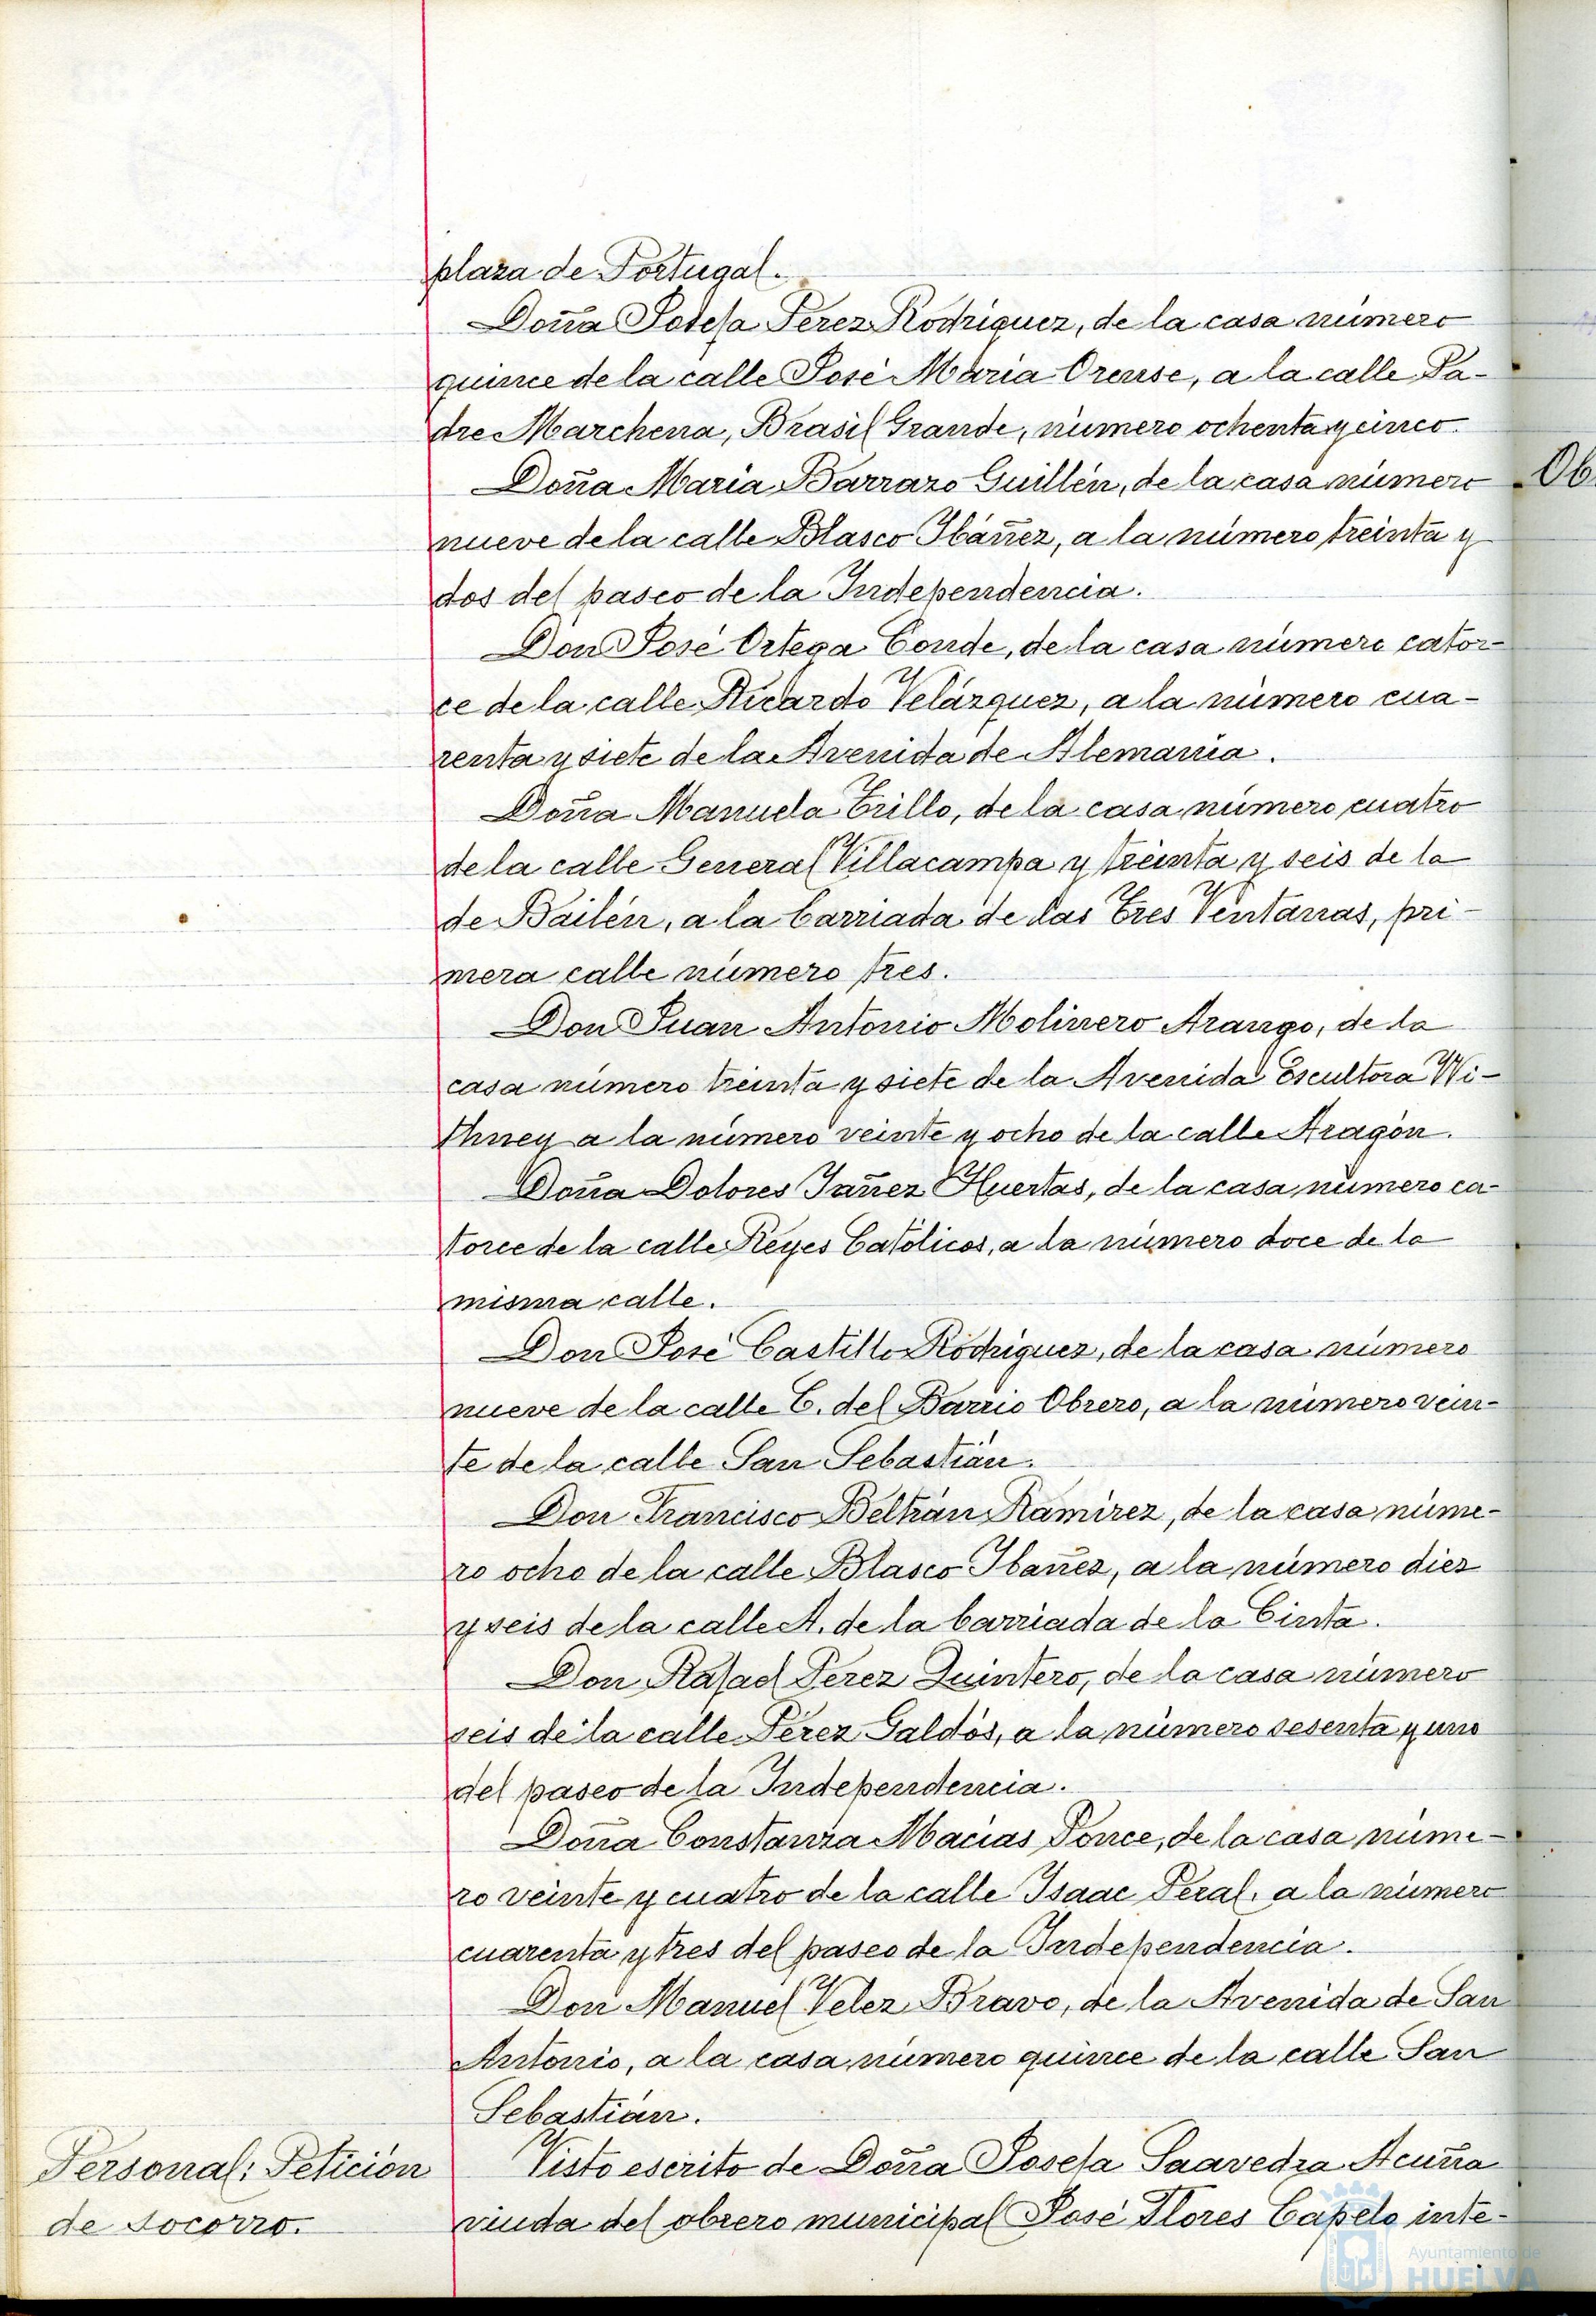 plaza de Portugal.
Doña Josefa Perez Rodriguez, de la casa número
quince de la calle José Maria Orense, a la calle Pa-
dre Marchena, Brasil Grande, número ochenta y cinco.
Doña Maria Barrazo Guillén, de la casa número
nueve de la calle Blasco Ibáñez, a la número treinta y
dos del paseo de la Independencia.
Don José Ortega Conde, de la casa número cator-
ce de la calle Ricardo Velázquez, a la número cua-
renta y siete de la Avenida de Alemania.
Doña Manuela Trillo, de la casa número cuatro
de la calle General Villacampa y treinta y seis de la
de Bailén, a la barriada de las Tres Ventanas, pri-
mera calle número tres.
Don Juan Antonio Molinero Arango, de la
casa número treinta y siete de la Avenida Escultora Wi-
thney a la número veinte y ocho de la calle Aragón.
Doña Dolores Jañez Huertas, de la casa número ca-
torce de la calle Reyes Católicos, a la número doce de la
misma calle.
Don José Castillo Rodriguez, de la casa número
nueve de la calle C. del Barrio Obrero, a la número vein-
te de la calle San Sebastián.
Don Francisco Beltrán Ramirez, de la casa núme-
ro ocho de la calle Blasco Ibañez, a la número diez
y seis de la calle A. de la barriada de la Cinta.
Don Rafael Perez Quintero, de la casa número
seis de la calle Pérez Galdós, a la número sesenta y uno
del paseo de la Independencia.
Doña Constanza Macias Ponce, de la casa núme-
ro veinte y cuatro de la calle Isaac Peral, a la número
cuarenta y tres del paseo de la Independencia.
Don Manuel Velez Bravo, de la Avenida de San
Antonio, a la casa número quince de la calle San
Sebastián.
Personal: Petición
de socorro.
Visto escrito de Doña Josefa Saavedra Acuña
viuda del obrero municipal José Flores Capelo inte-
Ob
Ayuntamiento de
HUELVA